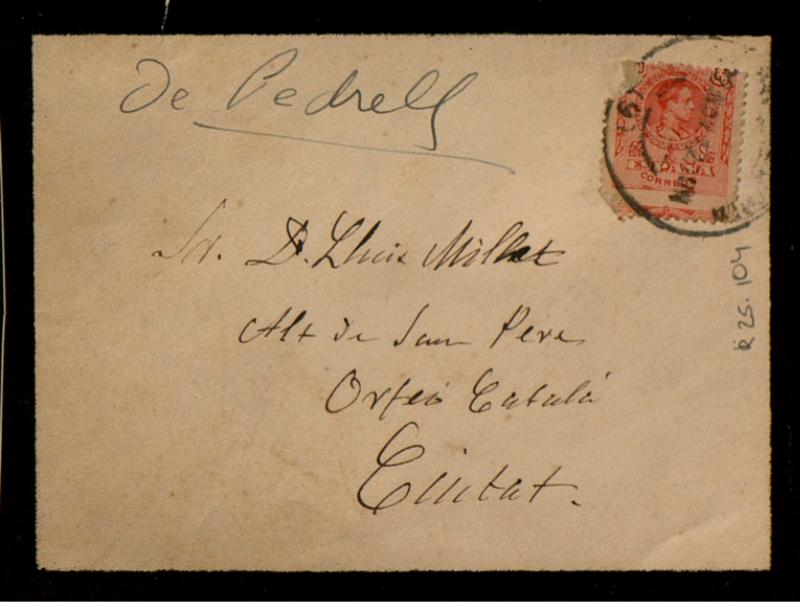 De Pedrell
ESPAÑA
CORREOS
Sr. D. Lluis Millet
Alt de Sant Pere
Orfeó Català
Ciutat.
R 25.104